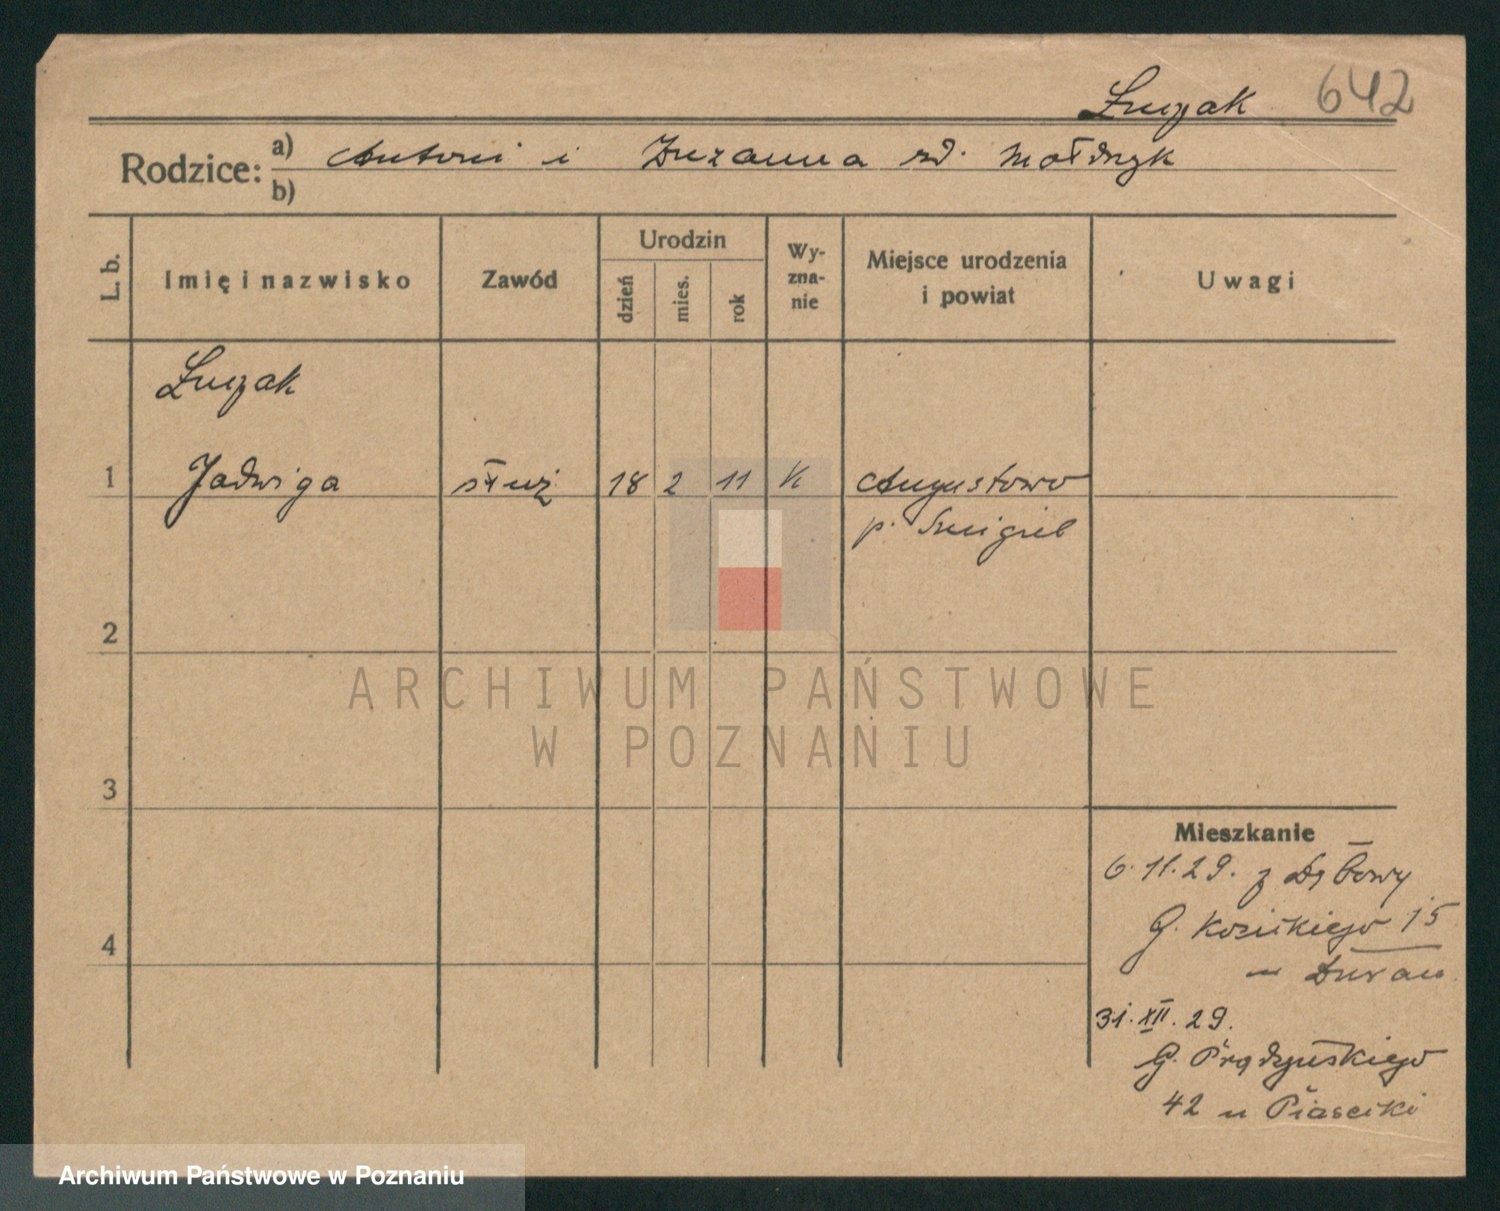 Łuczak 642
Rodzice: a) Antoni i Zuzanna zd. Mołdrzyk
b)
L. b. Imię i nazwisko Zawód Urodzin dzień mies. rok Wy-zna-nie Miejsce urodzenia i powiat Uwagi
Łuczak
1 Jadwiga służ 18 2 11 K Augustowo
p. Śmigiel
2
ARCHIWUM PAŃSTWOWE
W POZNANIU
3
Mieszkanie
6.11.29. z
G. 15
4
u
31.XII.29.
G. Prądzyńskiego
42 u Piasecki
Archiwum Państwowe w Poznaniu